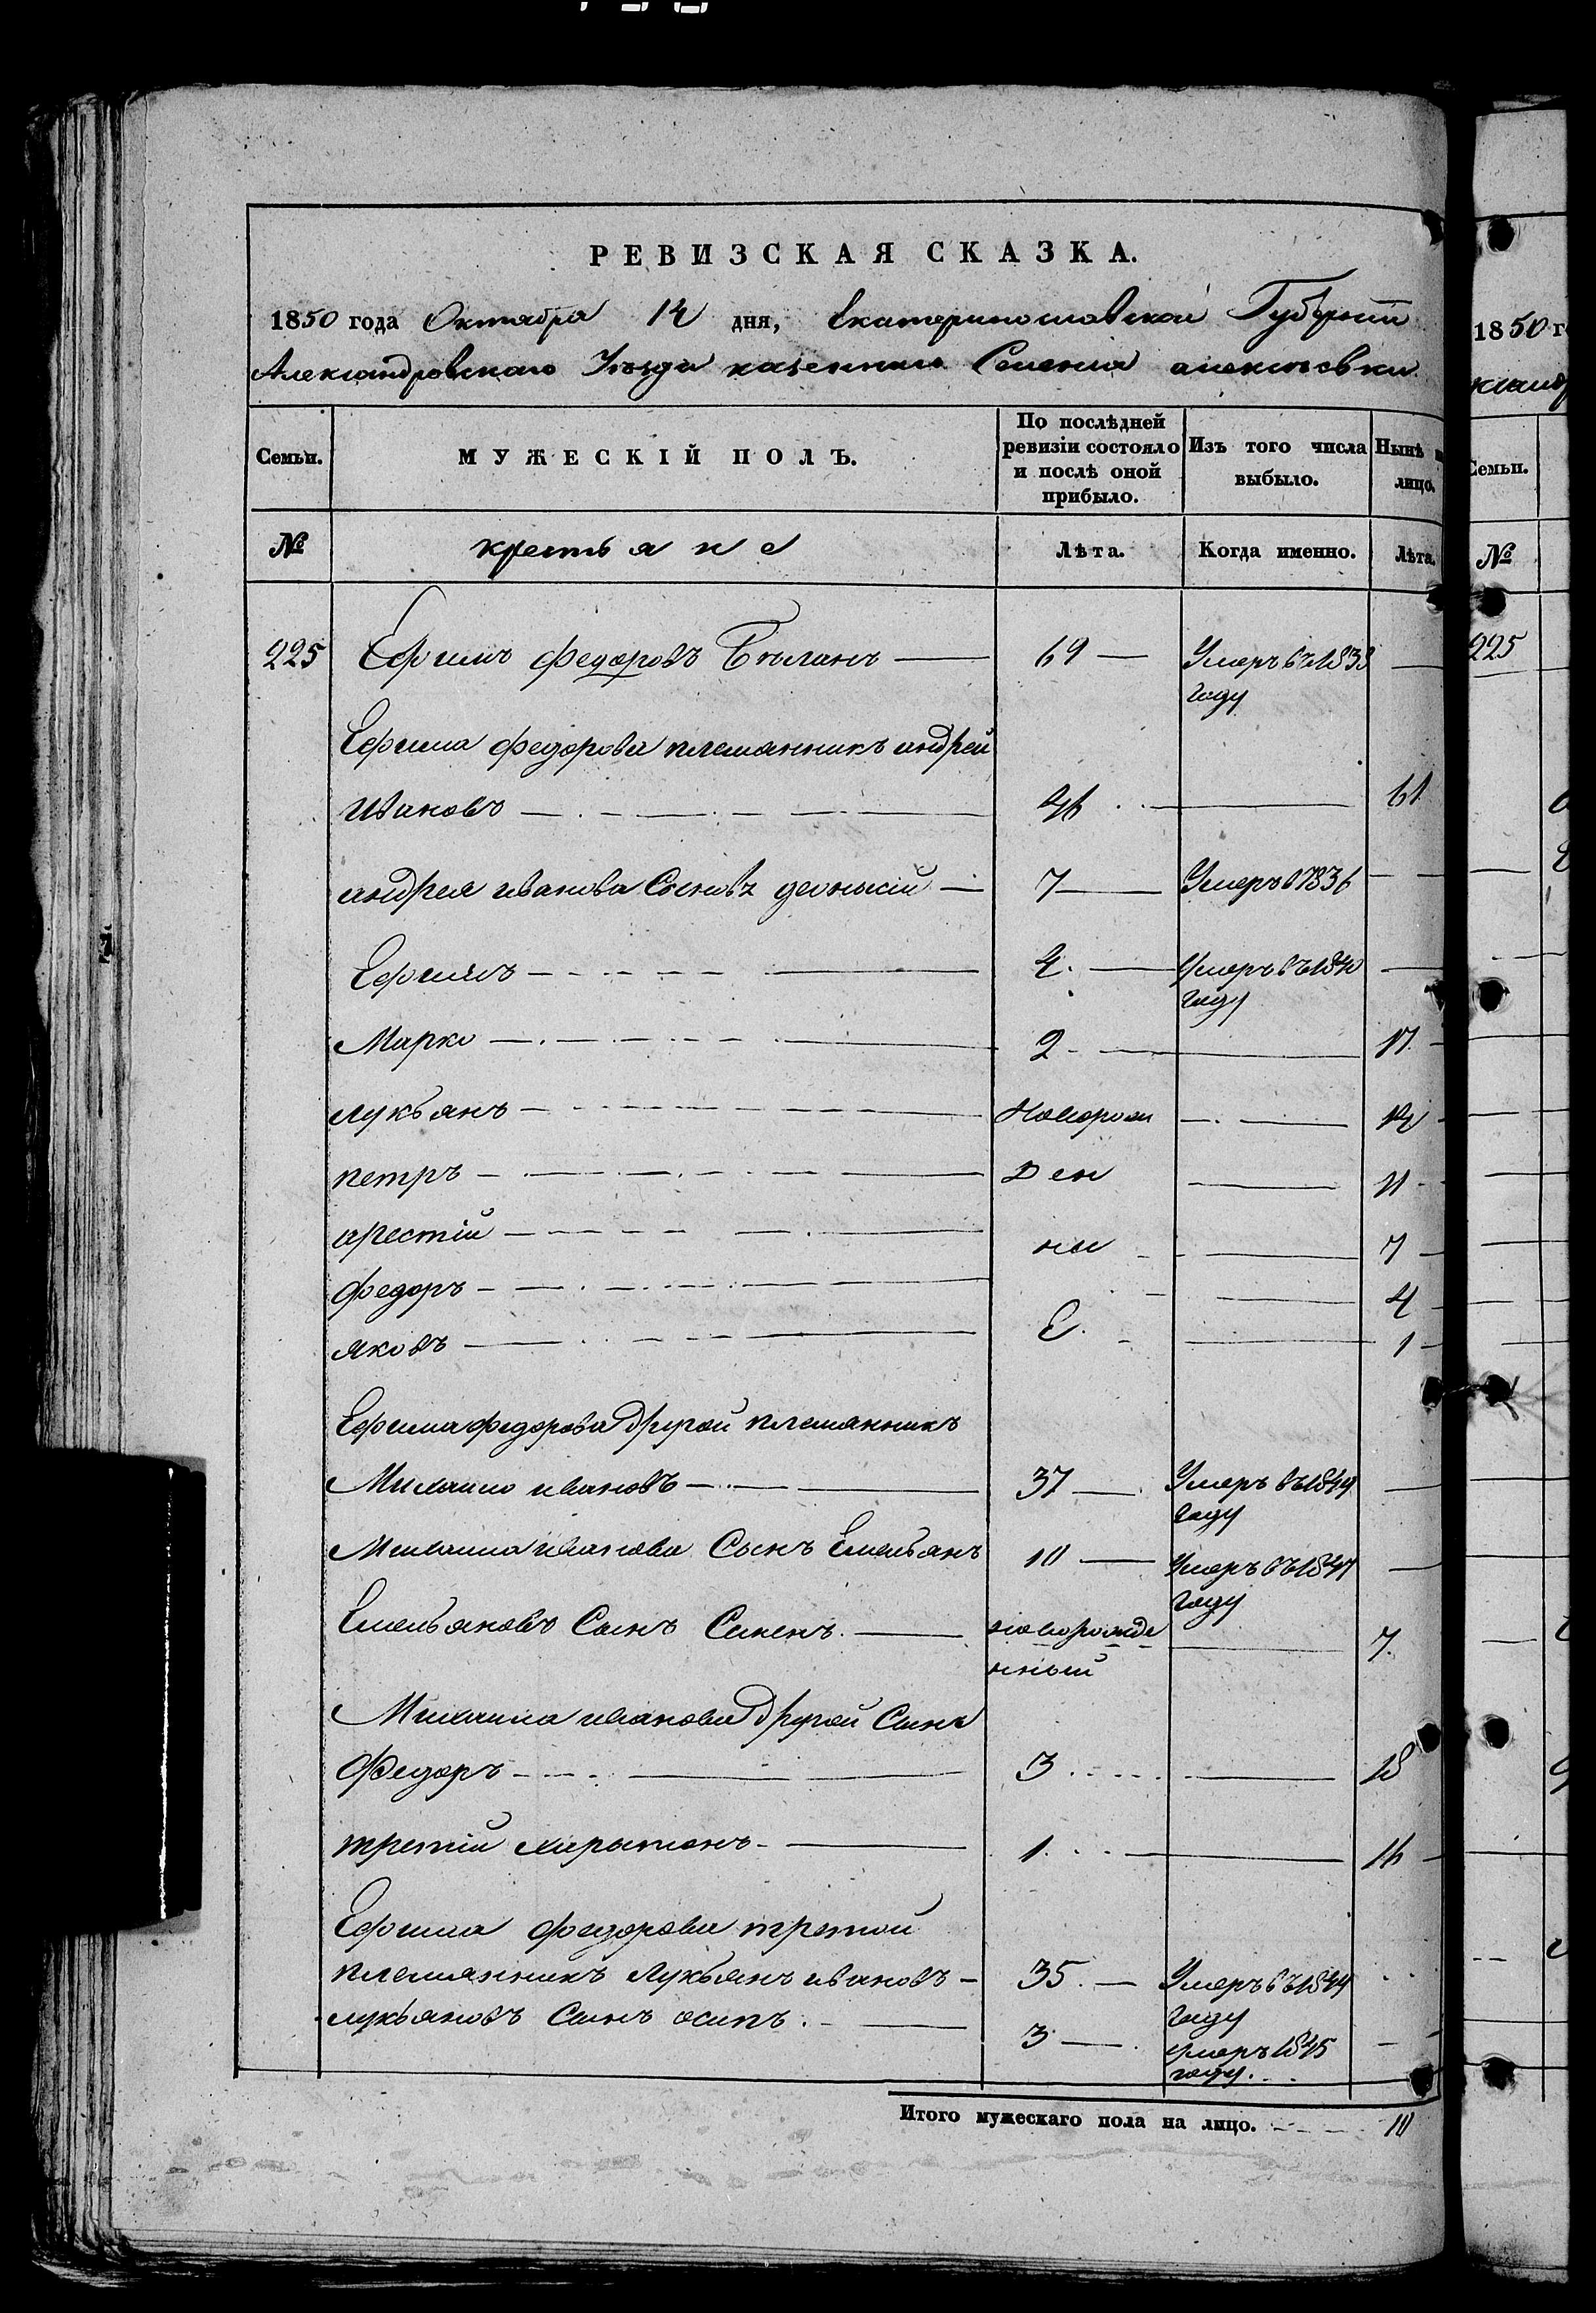 РЕВИЗСКАЯ СКАЗКА.
1850 года Октября 14 дня, Екатеринославской Губерніи
Александровскаго Уѣзда казеннаго Селенія алексѣевки
Семьи. МУЖЕСКІЙ ПОЛЪ. По послѣдней ревизіи состояло и послѣ оной прибыло. Изъ того числа выбыло. Нынѣ лицо.
№ крестьяне Лѣта. Когда именно. Лѣта.
225 Ефимъ федоровъ Бѣланъ 69 Умеръ въ 1838 году
Ефима федорова племянникъ андрей
Ивановъ 46 61
андрея иванова Сыновъ 7 Умеръ в 1836
Ефимъ 4 Умеръ въ 1840 году
Марко 2 17
лукьянъ Новорож 14
петръ ден 11
арестій ны 7
федоръ 4
яковъ е. 1
Ефима федорова другой племянникъ
Михайло ивановъ 37 Умеръ въ 1849 году
Михайла иванова Сынъ Емельянъ 10 Умеръ въ 1847 году
Емельяновъ Сынъ Семенъ новорожде нный 7
Михаила иванова другой Сынъ
Федоръ 3 18
третій харытонъ 1 16
Ефима федорова третой
племянникъ Лукьянъ ивановъ 35 Умеръ въ 1849 году
лукьяновъ Сынъ осипъ 3 умеръ 1845 году.
Итого мужескаго пола на лицо. 10
1850 г
Семьи.
№
225